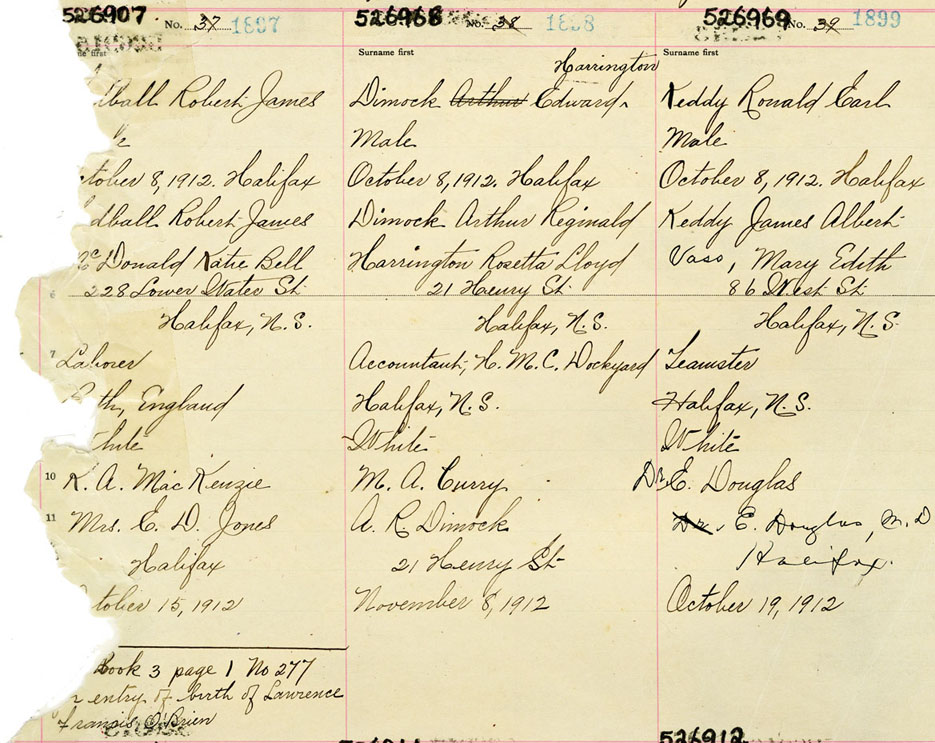 526907 No. 37 1897
Surname first
dball Robert James
tober 8, 1912. Halifax
dball Robert James
McDonald Katie Bell
6 228 Lower Water St
Halifax, N.S.
7 Laborer
th, England
hite
10 K. A. MacKenzie
11 Mrs. E. D. Jones
Halifax
tober 15, 1912
Book 3 page 1 No 277
entry of birth of Lawrence
Francis O'Brien
526968 No. 38 1898
Surname first
Harrington
Dimock Arthur Edward
Male
October 8, 1912. Halifax
Dimock Arthur Reginald
Harrington Rosetta Lloyd
21 Henry St
Halifax, N.S.
Accountant, H.M.C. Dockyard
Halifax, N.S.
White
M. A. Curry
A. R. Dimock
21 Henry St
November 8, 1912
526969 No. 39 1899
Surname first
Keddy Ronald Earl
Male
October 8, 1912. Halifax
Keddy James Albert
Vaso, Mary Edith
86 West St
Halifax, N.S.
Teamster
Halifax, N.S.
White
Dr. E. Douglas
Dr. E. Douglas, M.D
Halifax.
October 19, 1912
526912